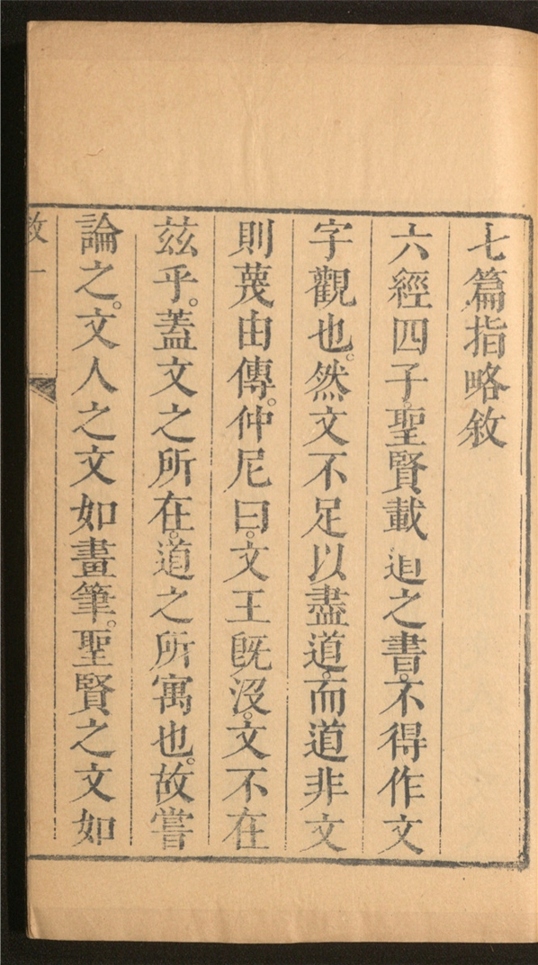 七篇指略敘
六經四子。聖賢載道之書。不得作文
字觀也。然文不足以盡道。而道非文
則蔑由傳。仲尼曰。文王既沒。文不在
茲乎。蓋文之所在。道之所寓也。故嘗
論之。文人之文如畫筆。聖賢之文如
敘一